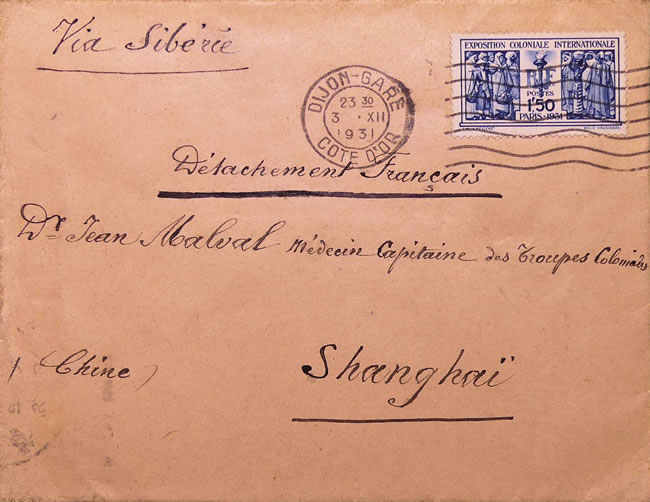 Via Sibérie
EXPOSITION COLONIALE INTERNATIONALE
RF
POSTES
1f50
PARIS · 1931
DIJON-GARE
23 30
3 · XII
1931
COTE D'OR
Détachement Français
Dr Jean Malval Médecin Capitaine des Troupes Coloniales
Shanghaï
( Chine )